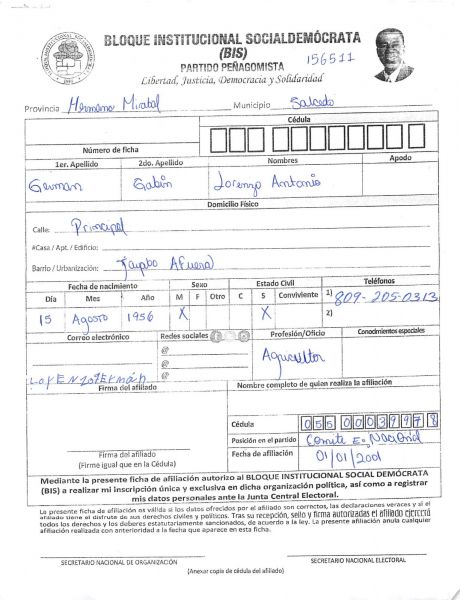 BLOQUE INSTITUCIONAL SOCIALDEMÓCRATA
(BIS)
PARTIDO PEÑAGOMISTA
156511
Libertad, Justicia, Democracia y Solidaridad
Provincia Hermana Mirabal Municipio Salcedo
Cédula
Número de ficha
1er. Apellido 2do. Apellido Nombres Apodo
German Gabin Lorenzo Antonio
Domicilio Físico
Calle: Principal
#Casa / Apt. / Edificio:
Barrio / Urbanización: Jayabo Afuera
Fecha de nacimiento Sexo Estado Civil Teléfonos
Día Mes Año M F Otro C S Conviviente 1) 809-205-0313
15 Agosto 1956 X X 2)
Correo electrónico Redes sociales Profesión/Oficio Conocimientos especiales
@
@ Agricultor
@
Lorenzo Germán
Firma del afiliado Nombre completo de quien realiza la afiliación
Cédula 055 0003997 8
Posición en el partido Comite E. Nacional
Firma del afiliado Fecha de afiliación 01/01/2001
(Firme igual que en la Cédula)
Mediante la presente ficha de afiliación autorizo al BLOQUE INSTITUCIONAL SOCIAL DEMÓCRATA
(BIS) a realizar mi inscripción única y exclusiva en dicha organización política, así como a registrar
mis datos personales ante la Junta Central Electoral.
La presente ficha de afiliación es válida si los datos ofrecidos por el afiliado son correctos, las declaraciones veraces y si el
afiliado tiene el disfrute de sus derechos civiles y políticos. Tras su recepción, sello y firma autorizadas el afiliado ejercerá
todos los derechos y los deberes estatutariamente sancionados, de acuerdo a la ley. La presente afiliación anula cualquier
afiliación realizada con anterioridad a la fecha que aparece en esta ficha.
SECRETARIO NACIONAL DE ORGANIZACIÓN SECRETARIO NACIONAL ELECTORAL
(Anexar copia de cédula del afiliado)